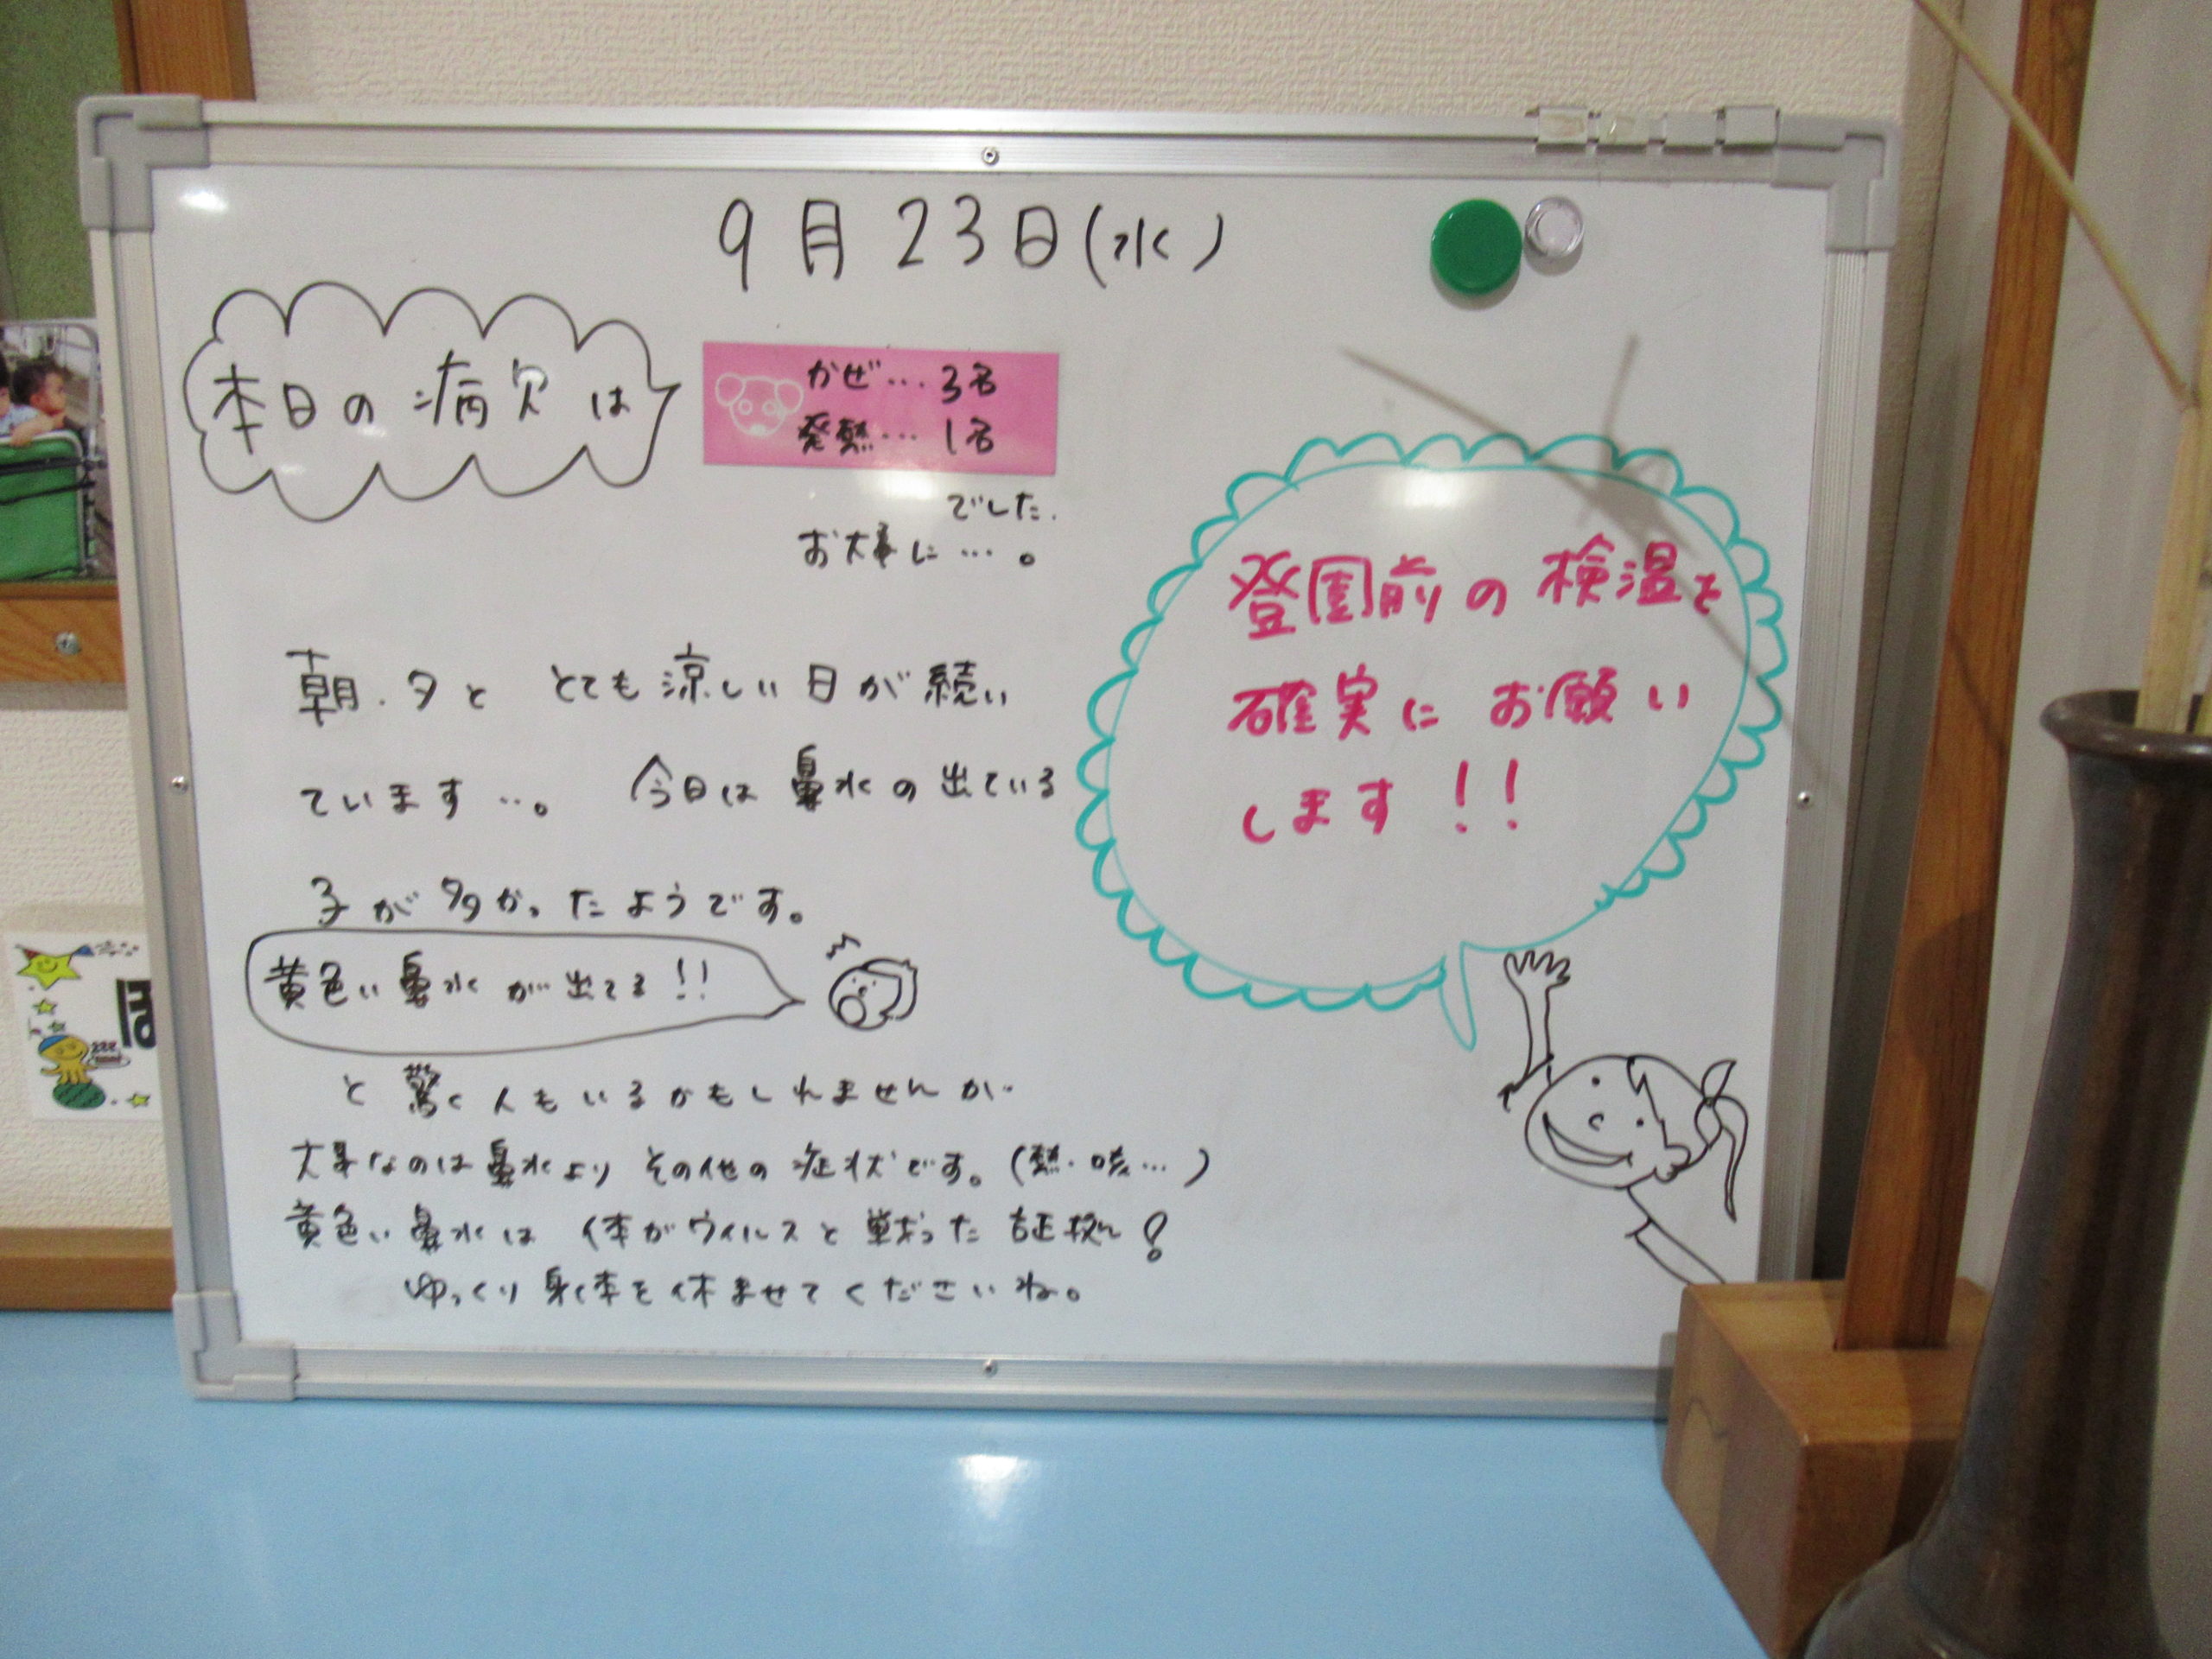 9月23日(水)
本日の病欠は
かぜ…3名
発熱…1名
でした.
お大事に…。
朝.夕と とても涼しい日が続い
ています…。 今日は鼻水の出ている
子が多かったようです。
黄色い鼻水が出てる!!
と驚く人もいるかもしれませんが
大事なのは鼻水より その他の症状です。(熱・咳…)
黄色い鼻水は 体がウィルスと戦った証拠!
ゆっくり身体を休ませてくださいね。
登園前の検温を
確実にお願い
します!!